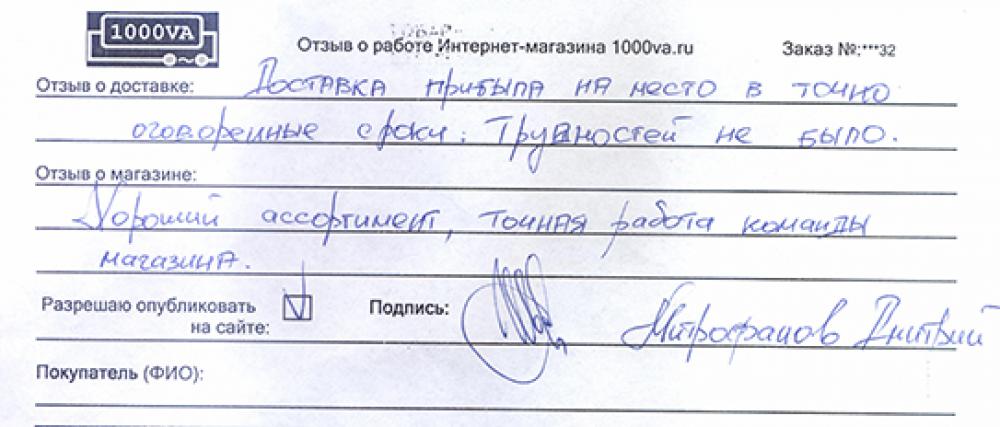 1000VA
ТОВАР
Отзыв о работе Интернет-магазина 1000va.ru
Заказ №:***32
Отзыв о доставке: Доставка прибыла на место в точно
оговоренные сроки. Трудностей не было.
Отзыв о магазине:
Хороший ассортимент, точная работа команды
магазина.
Разрешаю опубликовать
на сайте:
Подпись:
Митрофанов Дмитрий
Покупатель (ФИО):